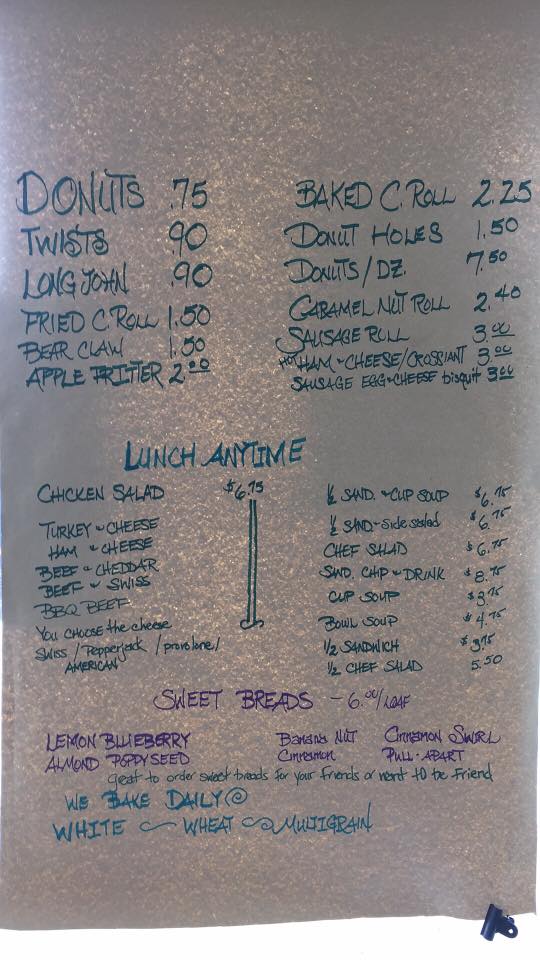 DONUTS .75
TWISTS .90
LONG JOHN .90
FRIED C. ROLL 1.50
BEAR CLAW 1.50
APPLE FRITTER 2.00
BAKED C. ROLL 2.25
DONUT HOLES 1.50
DONUTS/DZ. 7.50
CARAMEL NUT ROLL 2.40
SAUSAGE ROLL 3.00
HOT HAM & CHEESE/CROSSIANT 3.00
SAUSAGE EGG & CHEESE bisquit 3.00
LUNCH ANYTIME
CHICKEN SALAD $6.75
TURKEY & CHEESE
HAM & CHEESE
BEEF & CHEDDAR
BEEF & SWISS
BBQ BEEF
YOU CHOOSE the cheese
SWISS / Pepperjack / provolone/
AMERICAN
½ SAND. & CUP SOUP $6.75
½ SAND & Side salad 6.75
CHEF SALAD $6.75
SAND. CHIP & DRINK $8.75
CUP SOUP $3.75
BOWL SOUP $4.75
1/2 SANDWICH $3.75
1/2 CHEF SALAD 5.50
SWEET BREADS - 6.00/LOAF
LEMON BLUEBERRY
ALMOND POPPYSEED
Banana NUT
Cinnamon
Cinnamon SWIRL
PULL-APART
great to order sweet breads for your friends or want to be friend
WE BAKE DAILY
WHITE ~ WHEAT ~ MULTIGRAIN